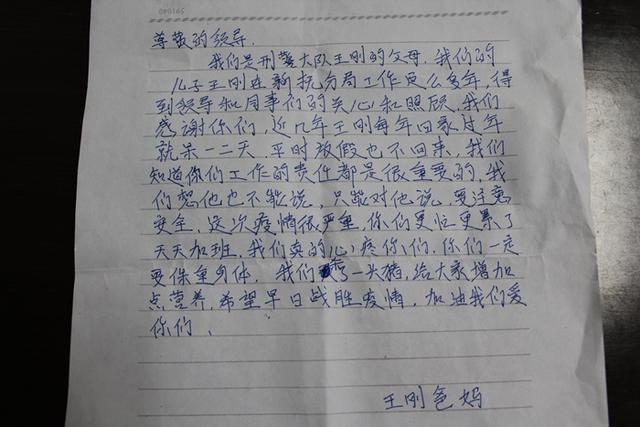 尊敬的领导.
我们是刑警大队王刚的父母.我们的
儿子王刚在新抚分局工作这么多年,得
到领导和同事们的关心和照顾,我们
感谢你们,近几年王刚每年回家过年
就呆一二天,平时放假也不回来,我们
知道你们工作的责任都是很重要的,我
们想他也不能说,只能对他说,要注意
安全,这次疫情很严重,你们更忙更累了
天天加班,我们真的心疼你们,你们一定
要保重身体,我们了一头猪,给大家增加
点营养,希望早日战胜疫情,加油我们爱
你们、
王刚爸妈